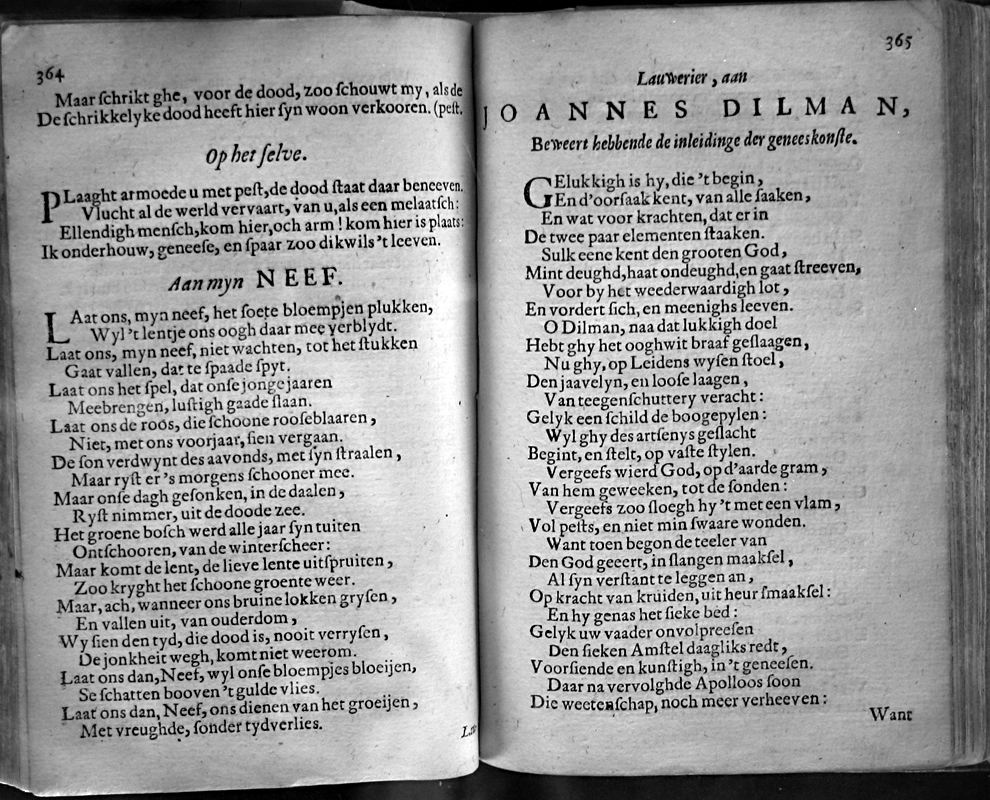 364
Maar ſchrikt ghe, voor de dood, zoo ſchouwt my, als de
De ſchrikkelyke dood heeft hier ſyn woon verkooren. (peſt.
Op het ſelve.
PLaaght armoede u met peſt, de dood ſtaat daar beneeven.
Vlucht al de werld vervaart, van u, als een melaatſch:
Ellendigh menſch, kom hier, och arm! kom hier is plaats:
Ik onderhouw, geneeſe, en ſpaar zoo dikwils 't leeven.
Aan myn NEEF.
LAat ons, myn neef, het ſoete bloempjen plukken,
Wyl 't lentje ons oogh daar mee verblydt.
Laat ons, myn neef, niet wachten, tot het ſtukken
Gaat vallen, dat te ſpaade ſpyt.
Laat ons het ſpel, dat onſe jonge jaaren
Meebrengen, luſtigh gaade ſlaan.
Laat ons de roos, die ſchoone rooſeblaaren,
Niet, met ons voorjaar, ſien vergaan.
De ſon verdwynt des aavonds, met ſyn ſtraalen,
Maar ryſt er 's morgens ſchooner mee.
Maar onſe dagh geſonken, in de daalen,
Ryſt nimmer, uit de doode zee.
Het groene boſch werd alle jaar ſyn tuiten
Ontſchooren, van de winterſcheer:
Maar komt de lent, de lieve lente uitſpruiten,
Zoo kryght het ſchoone groente weer.
Maar, ach, wanneer ons bruine lokken gryſen,
En vallen uit, van ouderdom,
Wy ſien den tyd, die dood is, nooit verryſen,
De jonkheit wegh, komt niet weerom.
Laat ons dan, Neef, wyl onſe bloempjes bloeijen,
Se ſchatten booven 't gulde vlies.
Laat ons dan, Neef, ons dienen van het groeijen,
Met vreughde, ſonder tydverlies.
365
Lauwerier, aan
JOANNES DILMAN,
Beweert hebbende de inleidinge der geneeskonſte.
GElukkigh is hy, die 't begin,
En d'oorſaak kent, van alle ſaaken,
En wat voor krachten, dat er in
De twee paar elementen ſtaaken.
Sulk eene kent den grooten God,
Mint deughd, haat ondeughd, en gaat ſtreeven,
Voor by het weederwaardigh lot,
En vordert ſich, en meenighs leeven.
O Dilman, naa dat lukkigh doel
Hebt ghy het ooghwit braaf geſlaagen,
Nu ghy, op Leidens wyſen ſtoel,
Den jaavelyn, en looſe laagen,
Van teegenſchuttery veracht:
Gelyk een ſchild de boogepylen:
Wyl ghy des artſenys geſlacht
Begint, en ſtelt, op vaſte ſtylen.
Vergeefs wierd God, op d'aarde gram,
Van hem geweeken, tot de ſonden:
Vergeefs zoo ſloegh hy 't met een vlam,
Vol peſts, en niet min ſwaare wonden.
Want toen begon de teeler van
Den God geeert, in ſlangen maakſel,
Al ſyn verſtant te leggen an,
Op kracht van kruiden, uit heur ſmaakſel:
En hy genas het ſieke bed:
Gelyk uw vaader onvolpreeſen
Den ſieken Amſtel daagliks redt,
Voorſiende en kunſtigh, in 't geneeſen.
Daar na vervolghde Apolloos ſoon
Die weetenſchap, noch meer verheeven:
Want